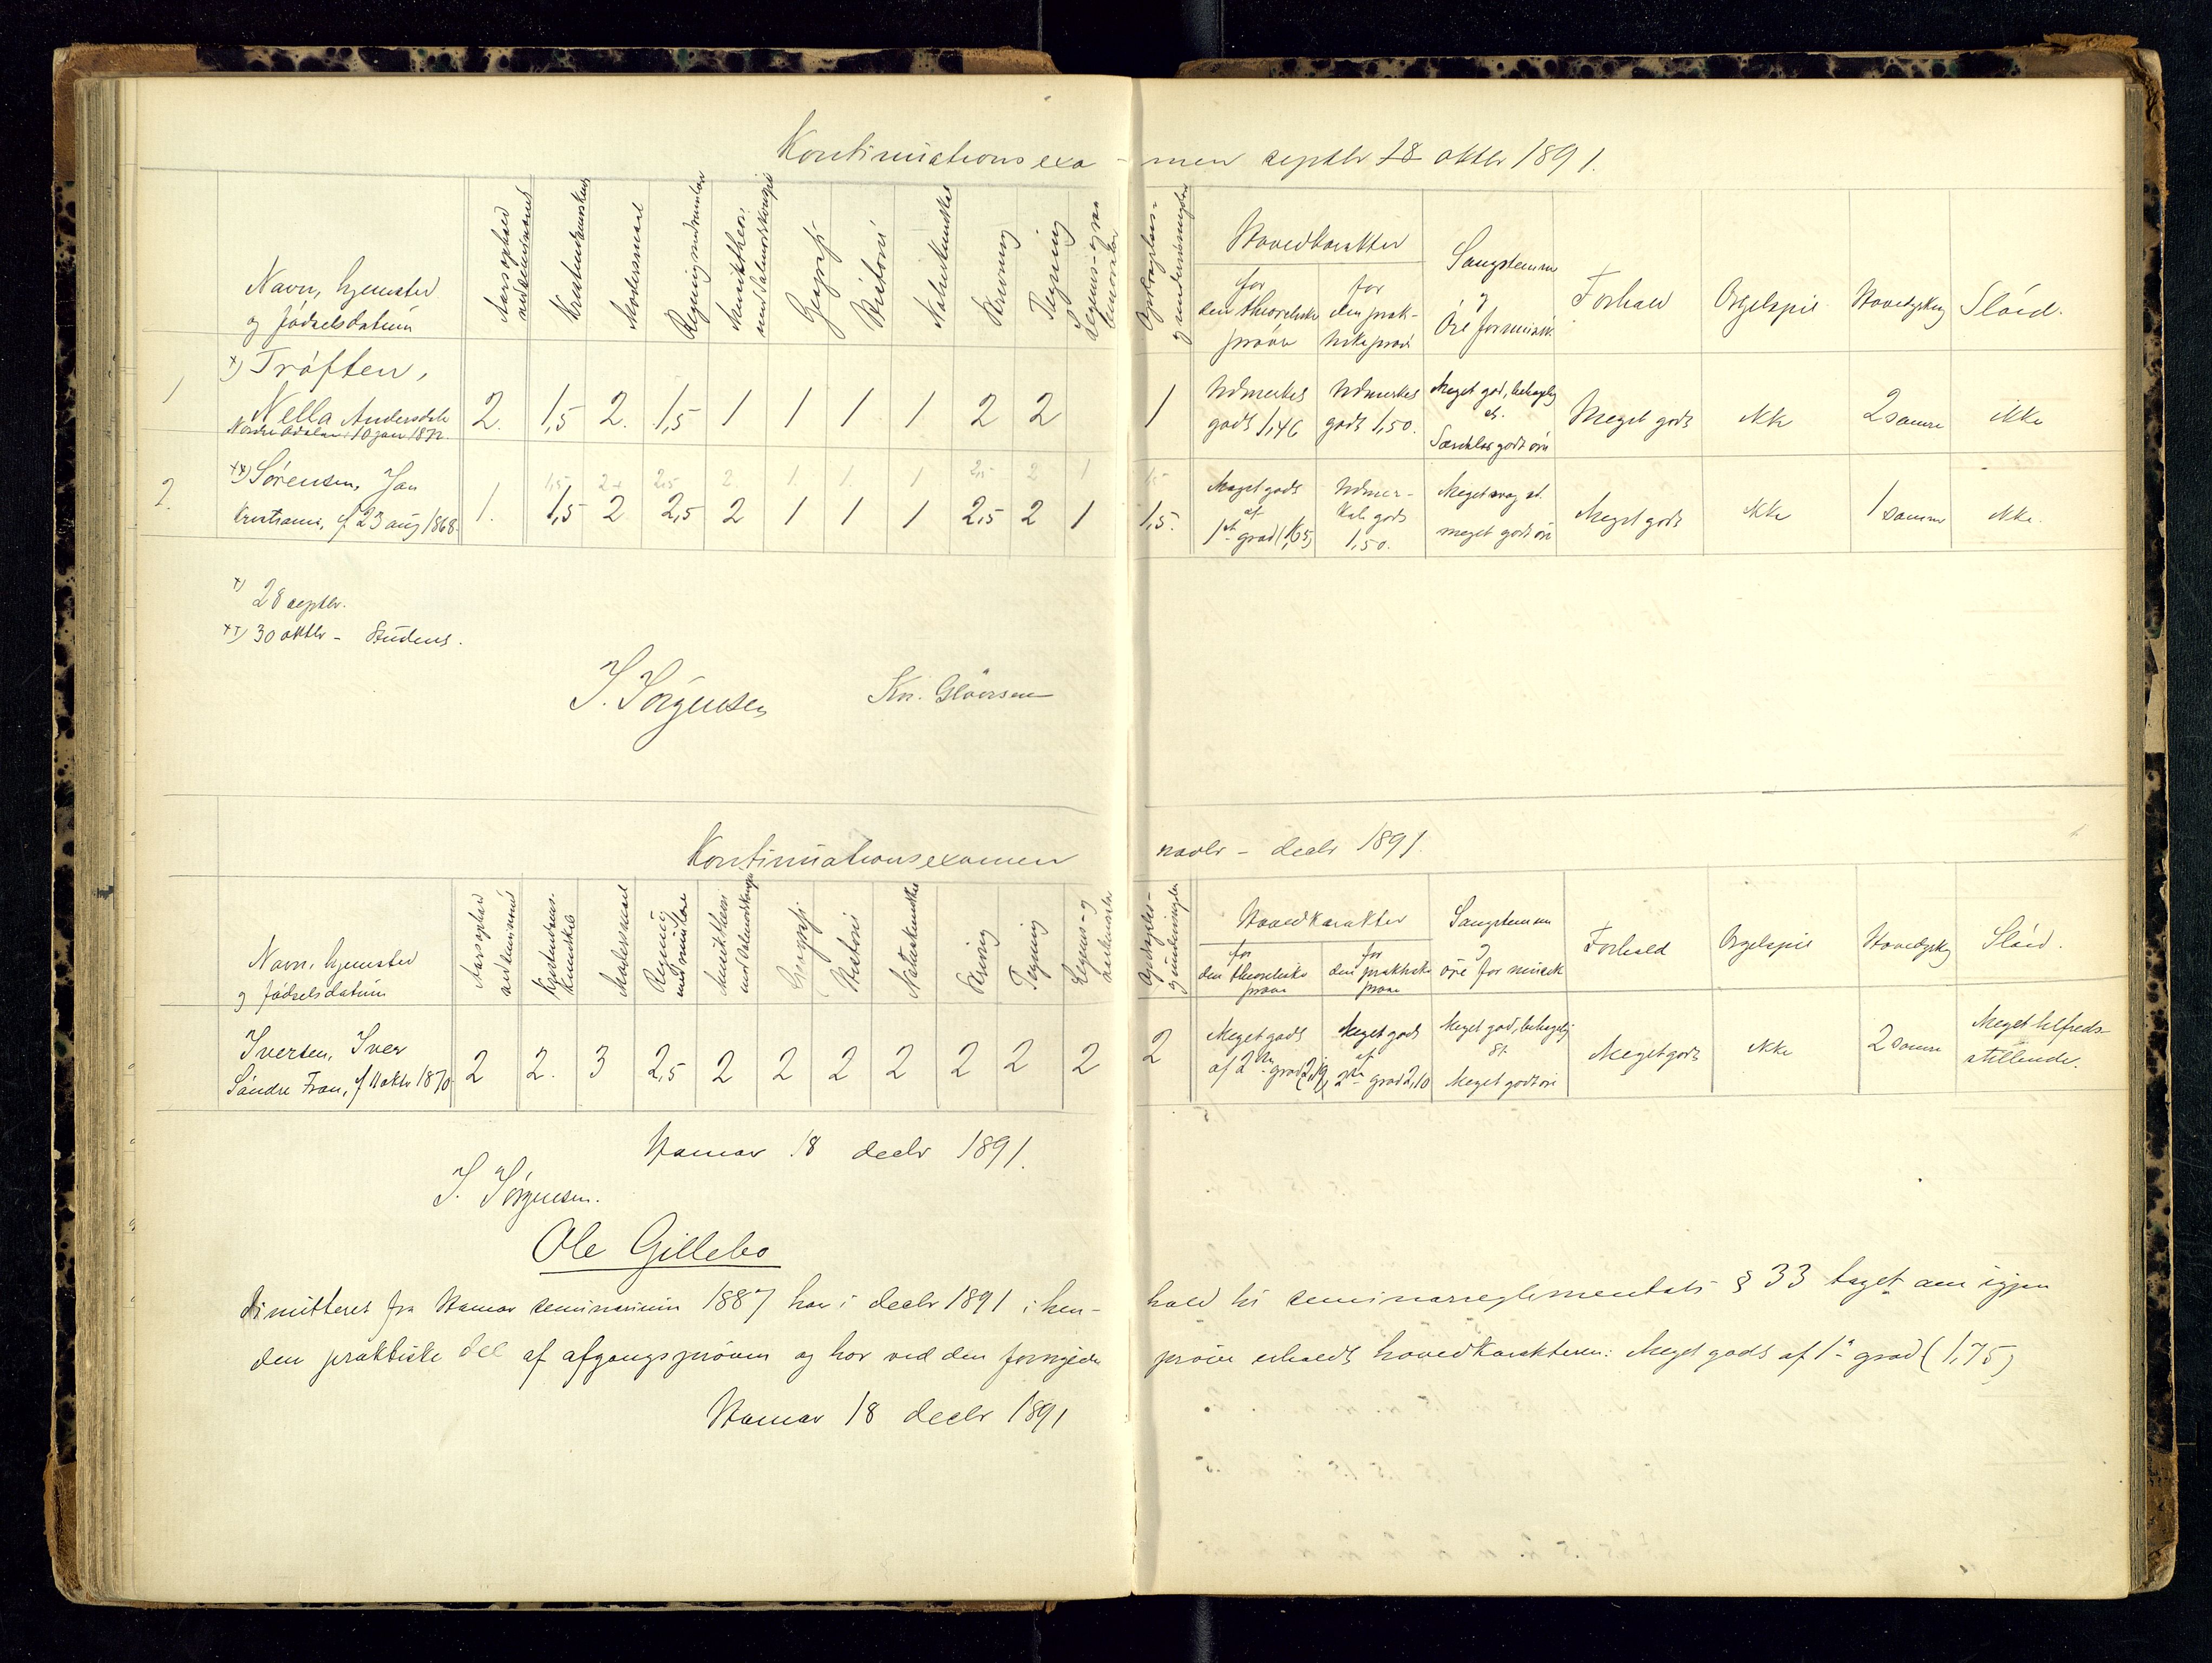 Kontinuationsexa - men septbr & oktbr 1891.
Navn, hjemsted
og fødselsdatum
Aarsophold
ved seminariet
Kristendomskundskab
Modersmaal
Regning med rumlære
Musiktheori
med salmodikonspil
Geografi
Historie
Naturkundskab
Skrivning
Tegning
Legems- og vaabenøvelser
Opdragelses-
og undervisningslære
Hovedkarakter
for
den theoretiske
prøve
for
den prak-
tiske prøve
Sangstemme
og
Øre for musik
Forhold
Orgelspil
Hovedsprog
Sløid.
1
x) Trøften,
Nella Andersdatr
Nordre Aadalen, 10 jan 1872.
2. 1,5 2. 1,5 1 1 1 1 2 2 1
Udmerket
godt 1,46
Udmerket
godt 1,50.
Meget god, behagelig
st.
Særdeles godt øre
Meget godt
ikke
2 samme
ikke
2.
xx) Sørensen, Jan
Kristiania, f 23 aug 1868.
1. 1,5 2 2,5 2 1 1 1 2,5 2 1 1,5.
Meget godt
af
1ste grad (1,65)
Udmer-
ket godt
1,50.
Meget svag st.
meget godt øre
Meget godt
ikke
1 samme
ikke.
x) 28 septbr.
xx) 30 oktbr - Student.
S. Sørgensen Kr. Gløersen
Kontinuationsexamen novbr - decbr 1891.
Navn, hjemsted
og fødselsdatum
Aarsophold
ved seminariet
Kristendoms-
kundskab
Modersmaal
Regning
med rumlære
Musiktheori
med salmodikonspil
Geografi
Historie
Naturkundskab
Skrivning
Tegning
Legems- og
vaabenøvelser
Opdragelses-
og undervisningslære
Hovedkarakter
for
den theoretiske
prøve
for
den praktiske
prøve
Sangstemme
og
øre for musik
Forhold
Orgelspil
Hovedsprog
Sløid.
Iversen, Iver
Søndre Fron, f 11 oktbr 1870
2 2. 3 2,5 2 2 2 2 2 2 2 2
Meget godt
af 2den grad (2,19)
Meget godt
af
2den grad 2,10
Meget god, behagelig
st.
Meget godt øre
Meget godt
ikke
2 samme
Meget tilfreds-
stillende.
Hamar 18 decbr 1891.
S. Sørgensen.
Ole Gillebo
dimitteret fra Hamar seminarium 1887 har i decbr 1891 i hen- hold til seminarreglementets § 33 taget om igjen
den praktiske del af afgangsprøven og har ved den fornyede prøve erholdt hovedkarakteren: Meget godt af 1ste grad (1,75)
Hamar 18 decbr 1891